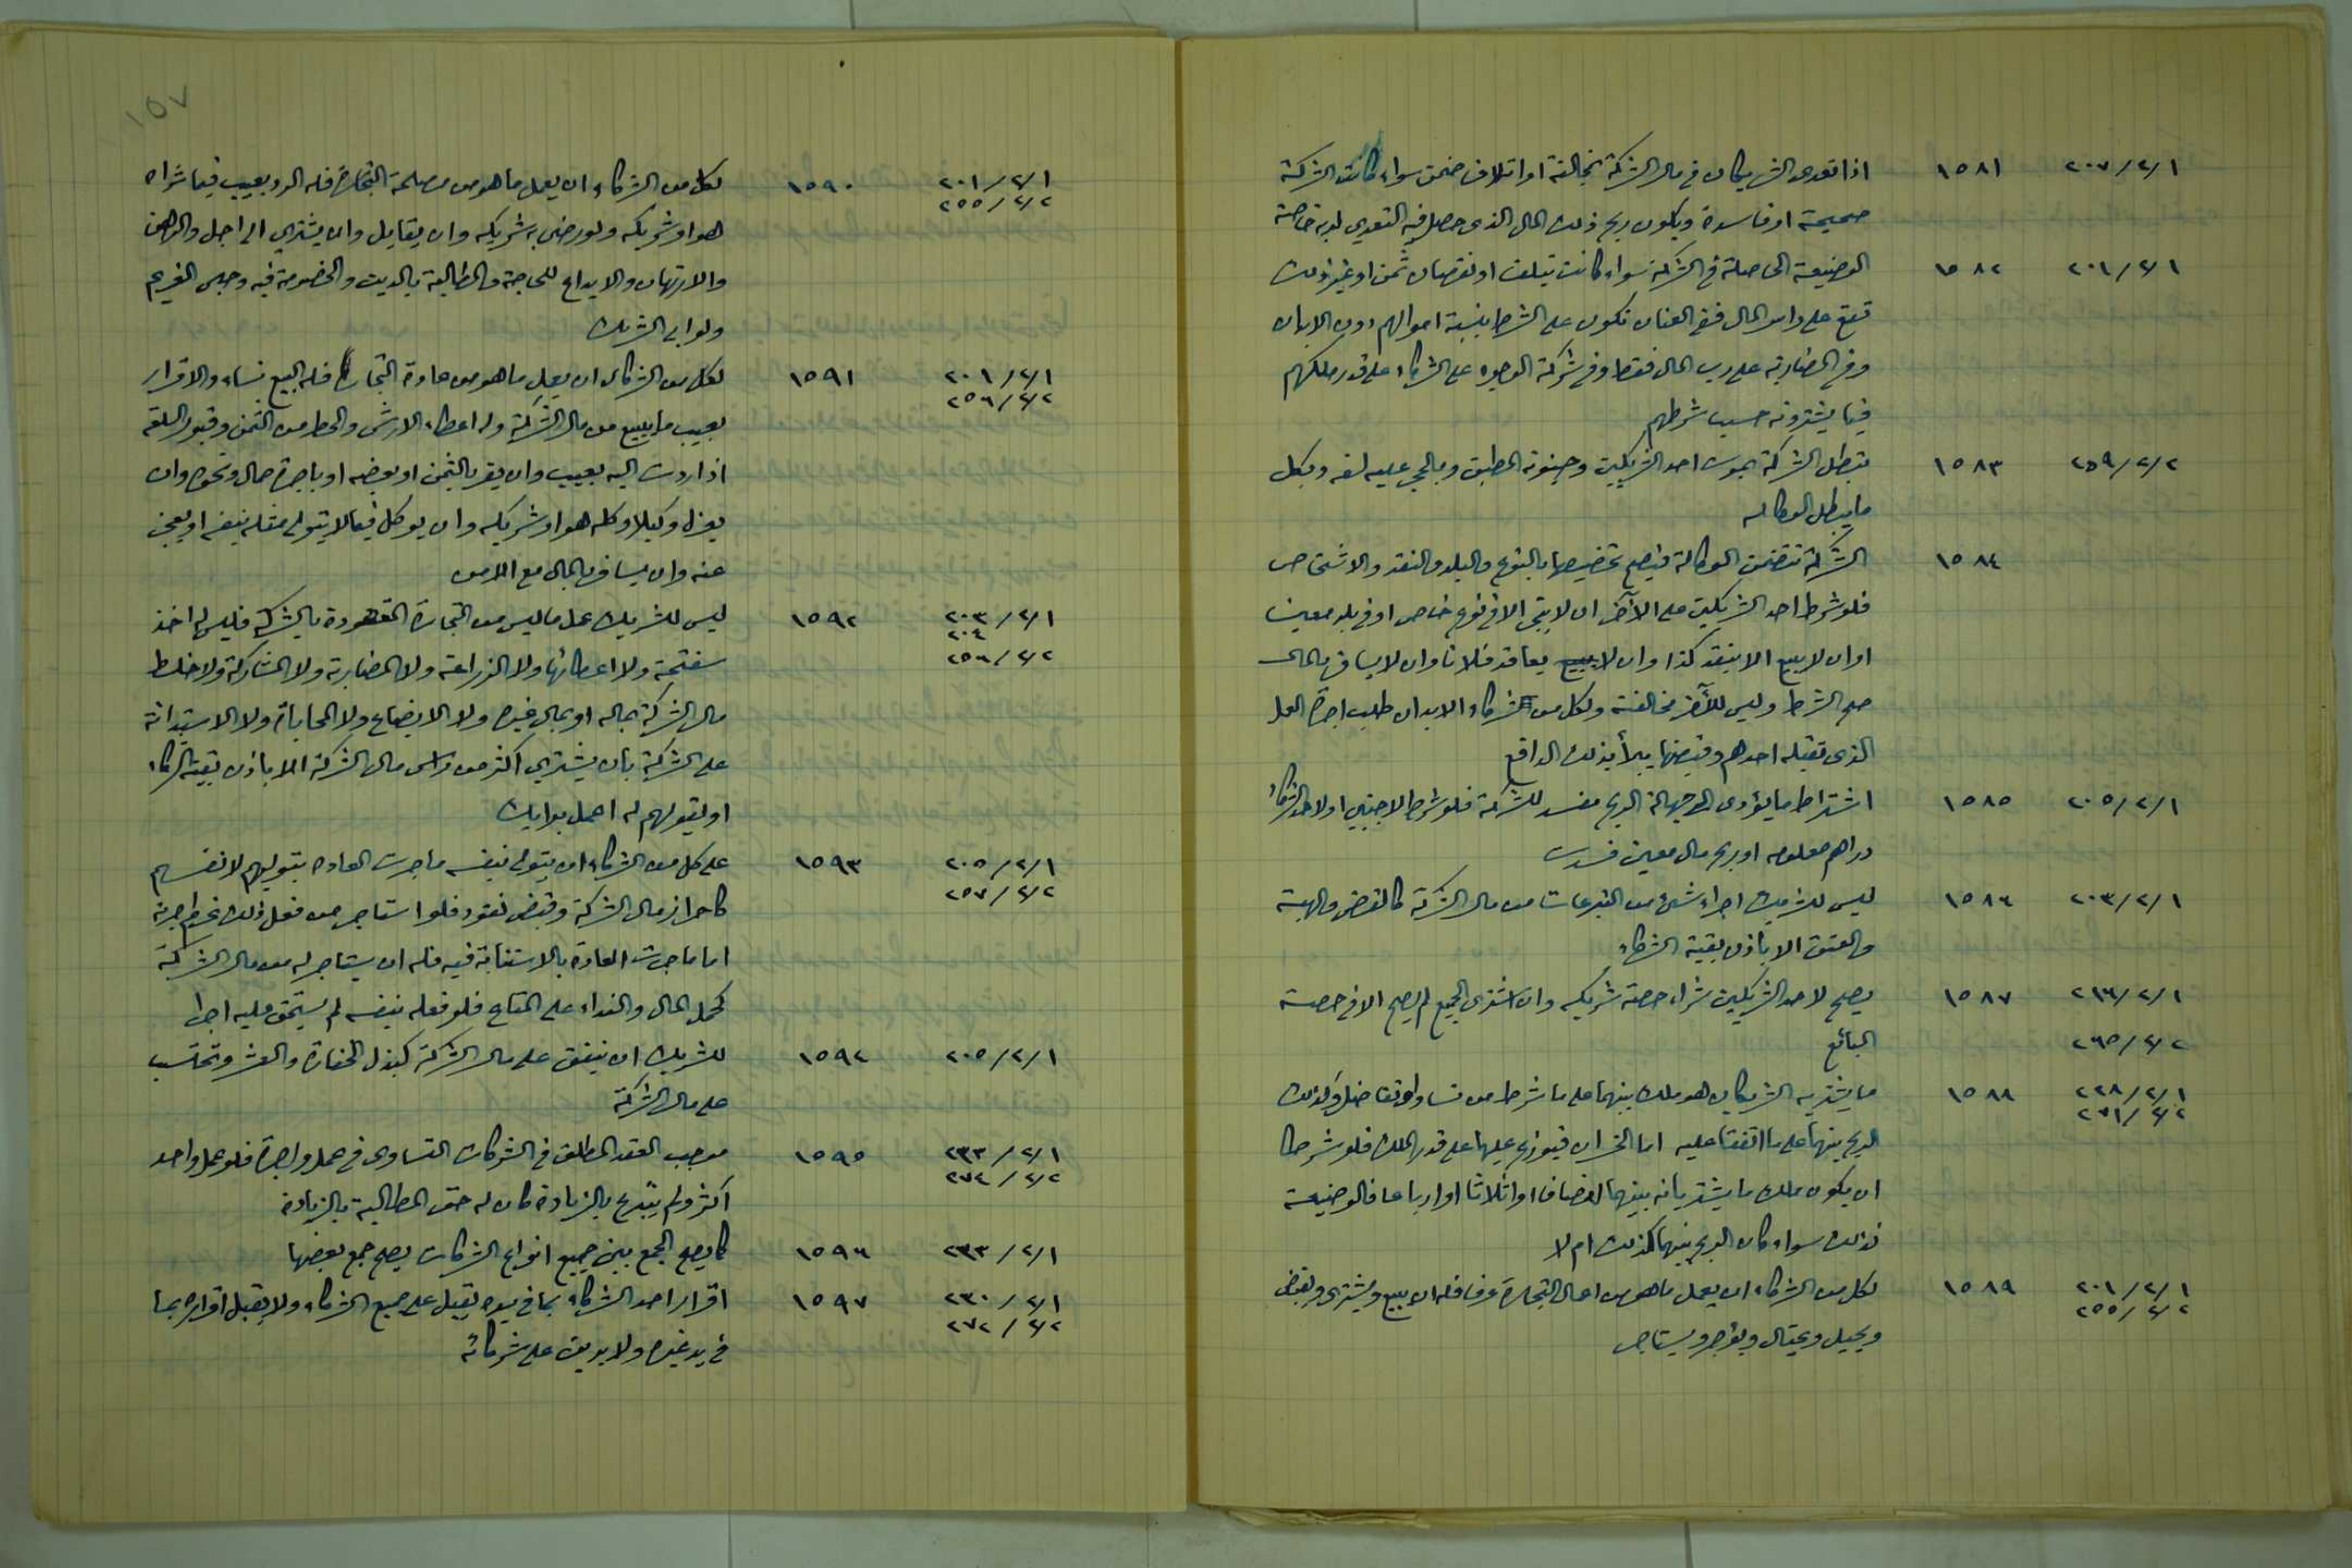 ٢٠٧/٢/١ ١٥٨١ اذا تعدى الشريكان في مال الشركة بمخالفة او اتلاف ضمن سواء كانت الشركة
صحيحة او فاسدة ويكون ربح ذلك المال الذي حصل فيه التعدي لربه خاصة
٢٠١/٢/١ ١٥٨٢ الوضيعة الحاصلة في الشركة سواء كانت بتلف او نقصان ثمن او غير ذلك
تقع على راس المال ففي العنان تكون على الشركاء بنسبة اموالهم دون الابدان
وفي المضاربة على رب المال فقط وفي شركة الوجوه على الشركاء على قدر ملكهم
فيما يشترونه حسب شرطهم
٢٥٩/٢/٢ ١٥٨٣ تبطل الشركة بموت احد الشريكين وجنونه المطبق وبالحجر عليه لسفه وبكل
ما يبطل الوكالة
١٥٨٤ الشركة تتضمن الوكالة فيصح تخصيصها بالنوع والبلد والنقد والاشخاص
فلو شرط احد الشريكين على الآخر ان لا يتجر الا في نوع خاص او في بلد معين
او ان لا يبيع الا بنقد كذا او ان لا يبيع يعاقد فلانا وان لا يسافر بالمال
صح الشرط وليس للآخر مخالفته ولكل من شركاء الابدان طلب اجرة العمل
الذي تقبله احدهم وقبضها يبرأ بذلك الدافع
٢٠٥/٢/١ ١٥٨٥ اشتراط ما يؤدي الى جهالة الربح مفسد للشركة فلو شرط لاجنبي او لاحد الشركاء
دراهم معلومه او ربح مال معين فسدت
٢٠٣/٢/١ ١٥٨٦ ليس للشريك اجراء شئ من التبرعات من مال الشركة كالقرض والهبة
والعتق الا باذن بقية الشركاء
٢١٦/٢/١ ١٥٨٧ يصح لاحد الشريكين شراء حصة شريكه وان اشترى الجميع لم يصح الا في حصة
٢٦٥/٢/٢ البائع
٢٢٨/٢/١ ١٥٨٨ ما يشتريه الشريكان هو ملك بينهما على ما شرط من تساو او تفاضل وكذلك
٢٧١/٢/٢
الربح بينهما على ما اتفقا عليه اما الخسران فيوزع عليهما على قدر الملك فلو شرطا
ان يكون ملك ما يشتريانه بينهما انصافا او اثلاثا او ارباعا فالوضيعة
كذلك سواء كان الربح بينهما كذلك ام لا
٢٠١/٢/١ ١٥٨٩ لكل من الشركاء ان يعمل ما هو من اعمال التجارة عرفا فله ان يبيع ويشتري ويقبض
٢٥٥/٢/٢
ويحيل ويحتال ويؤجر ويستاجر
١٥٧
٢٠١/٢/١ ١٥٩٠ لكل من الشركاء ان يعمل ما هو من مصلحة التجارة فله الرد بعيب فيما شراه
٢٥٥/٢/٢
هو او شريكه ولو رضي به شريكه وان يقايل وان يشتري الى اجل والرهن
والارتهان والايداع للحاجة والمطالبة بالدين والخصومة فيه وحبس الغريم
ولو ابى الشريك
٢٠١/٢/١ ١٥٩١ لكل من الشركاء ان يعمل ما هو من عادة التجار فله البيع نساء والاقرار
٢٥٦/٢/٢
بعيب ما يبيع من مال الشركة وله اعطاء الارش والحط من الثمن وقبول السلعة
اذا ردت اليه بعيب وان يقر بالثمن او بعضه او باجرة حمال ونحوه وان
يعزل وكيلا وكله هو او شريكه وان يوكل فيما لا يتولى مثله بنفسه او يعجز
عنه وان يسافر بالمال مع الامن
٢٠٣/٢/١ ١٥٩٢ ليس للشريك عمل ما ليس من التجارة المقصودة بالشركة فليس له اخذ
٢٠٤
٢٥٦/٢/٢ سفتجة ولا اعطائها ولا الزراعة ولا المضاربة ولا المشاركة ولا خلط
مال الشركة بماله او بمال غيره ولا الابضاع ولا المحاباة ولا الاستدانة
على الشركة بان يشتري اكثر من راس مال الشركة الا باذن بقية الشركاء
او بقولهم له اعمل برايك
٢٠٥/٢/١ ١٥٩٣ على كل من الشركاء ان يتولى بنفسه ما جرت العادة بتوليهم لانفسهم
٢٥٧/٢/٢
كاحراز مال الشركة وقبض نقود فلو استاجر من فعل ذلك غرم اجرته
اما ما جرت العادة بالاستنابة فيه فله ان يستاجر له من مال الشركة
كحمل المال والنداء على المتاع فلو فعله بنفسه لم يستحق عليه اجرا
٢٠٥/٢/١ ١٥٩٤ للشريك ان ينفق على مال الشركة كبذل الخفارة والعشر وتحتسب
على مال الشركة
٢٣٣/٢/١ ١٥٩٥ موجب العقد المطلق في الشركات التساوي في عمل واجرة فلو عمل واحد
٢٧٤/٢/٢
اكثر ولم يتبرع بالزيادة كان له حق المطالبة بالزيادة
٢٣٣/٢/١ ١٥٩٦ كما يصح الجمع بين جميع انواع الشركات يصح جمع بعضها
٢٣٠/٢/١ ١٥٩٧ اقرار احد الشركاء بما في يده يقبل على جميع الشركاء ولا يقبل اقراره بما
٢٧٢/٢/٢
في يد غيره ولا بدين على شركائه